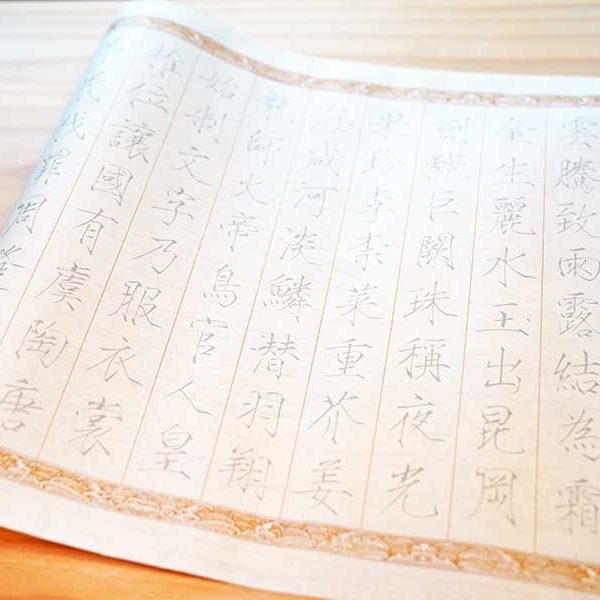 雲騰致雨露結為霜
金生麗水玉出昆岡
劍號巨闕珠稱夜光
果珍李柰菜重芥姜
海咸河淡鱗潜羽翔
龍師火帝鳥官人皇
始制文字乃服衣裳
推位讓國有虞陶唐
民伐罪周發